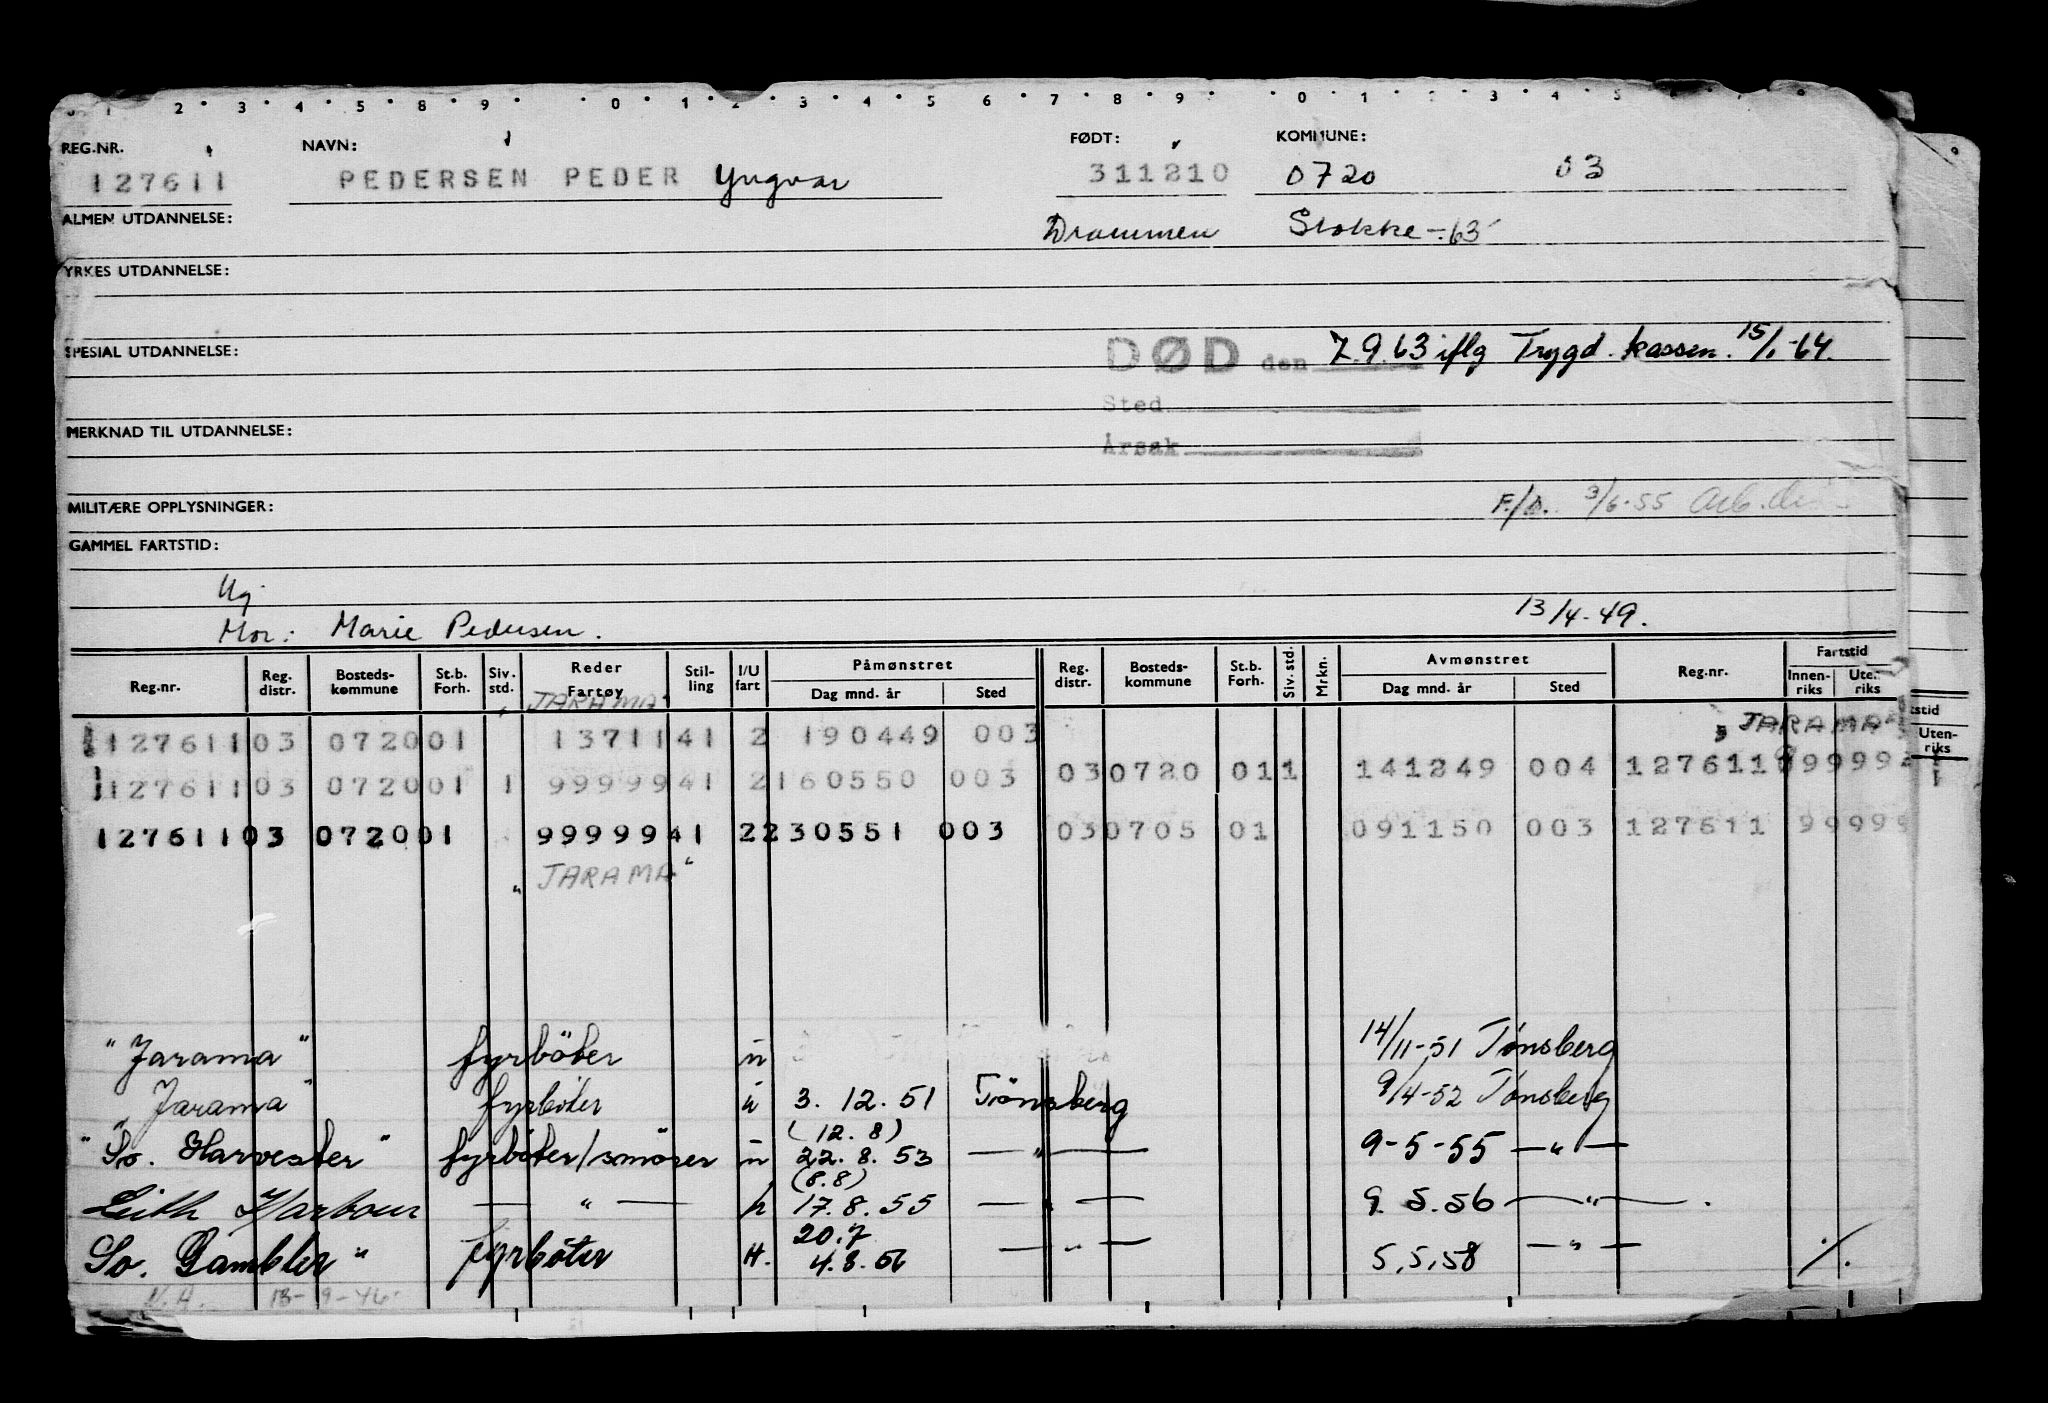 1 2 3 4 5 8 9 0 1 2 3 4 5 6 7 8 9 0 1 3 4 5
REG.NR. NAVN: FØDT: KOMMUNE:
127611 PEDERSEN PEDER Yngvar 311210 0720 03
ALMEN UTDANNELSE: Drammen Stokke -63
YRKES UTDANNELSE:
SPESIAL UTDANNELSE: DØD den 7.9.63 iflg Trygd.kassen. 15/1-64.
Sted
Årsak
MERKNAD TIL UTDANNELSE:
MILITÆRE OPPLYSNINGER: 3/6-55 Arb.
GAMMEL FARTSTID:
Ug.
Mor: Marie Pedersen. 13/4-49.
Reg.nr. Reg. distr. Bosteds-kommune St.b. Forh. Siv. std. Reder Fartøy Stil-ling I/U fart Påmønstret Dag mnd. år Sted Reg. distr. Bosteds-kommune St.b. Forh. Siv. std. Mrkn. Avmønstret Dag mnd. år Sted Reg.nr. Fartstid Innen-riks Uten-riks
"JARAMA" "JARAMA"
127611 03 0720 01 13711 41 2 190449 003
030720 01 1 141249 004 127611 99999
127611 03 0720 01 1 99999 41 2 160550 003
127611 03 0720 01 99999 41 2 230551 003 030705 01 091150 003 127611 99999
"JARAMA"
"Jarama" fyrböter u 14/11-51 Tønsberg
Jarama" fyrböter u 3. 12. 51 Tönsberg 9/4-52 Tønsberg
(12.8)
"So. Harvester" fyrböter/smører u 22. 8. 53 — " — 9-5-55 — " —
(8.8)
Leith Harbour — " — 17. 8. 55 — " — 9. 5. 56 — " — .
20.7
So. Gambler" fyrböter H. 4. 8. 56 — " — 5.5.58 — " —
N.A. 13-9-46